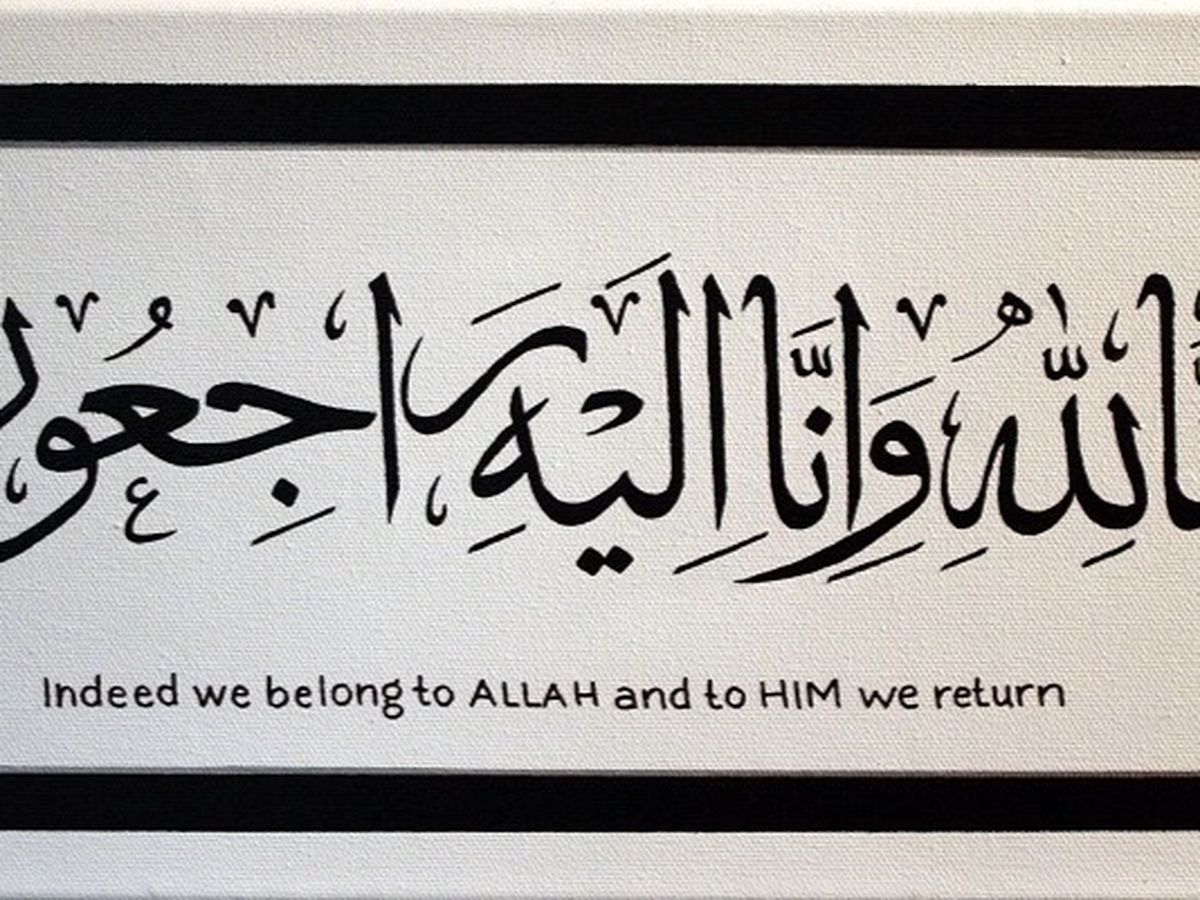 لِلّٰهِ وَاِنَّا اِلَيْهِ رَاجِعُو
Indeed we belong to ALLAH and to HIM we return